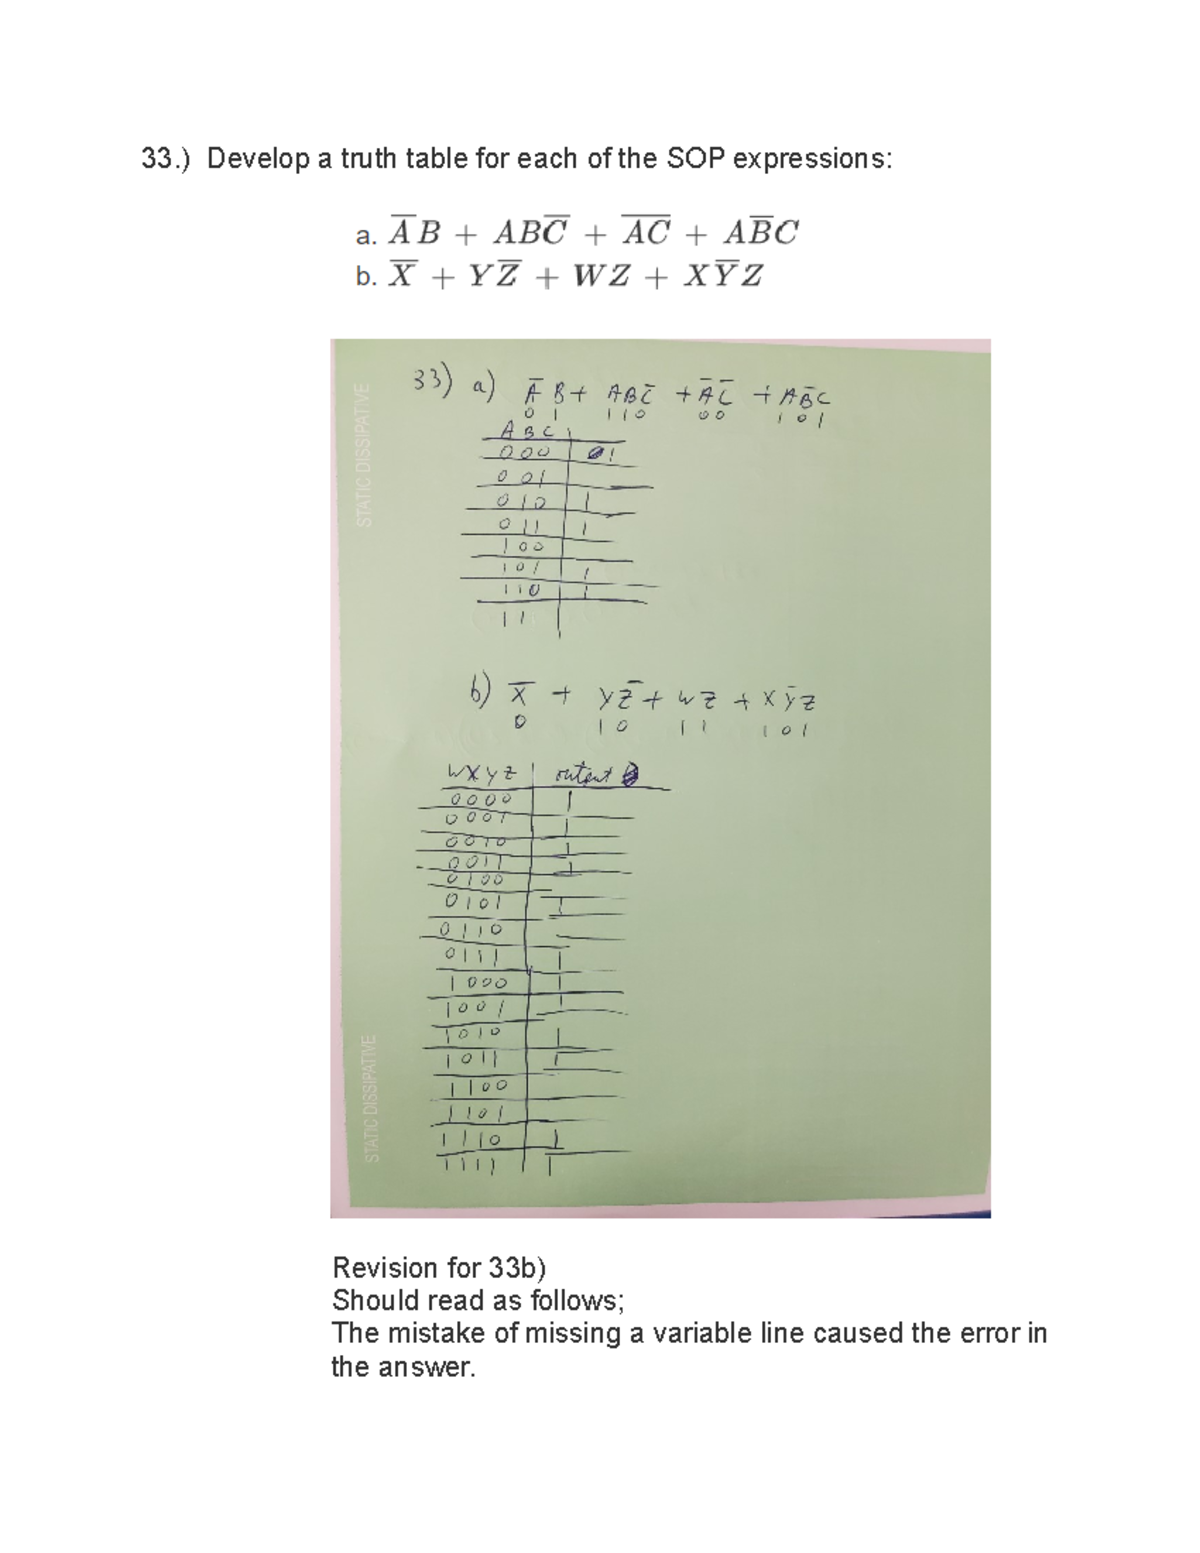 33.) Develop a truth table for each of the SOP expressions:
a. A̅B + ABC̅ + A̅C̅ + AB̅C
b. X̅ + YZ̅ + WZ + XY̅Z
33) a) A̅ B + ABC̅ + A̅ C̅ + AB̅C
0 1 110 00 101
A B C
000 1
001
010 1
011 1
100
101 1
110 1
11
b) X̅ + YZ̅ + WZ + XY̅Z
0 10 11 101
WXYZ output
0000 1
0001 1
0010 1
0011 1
0100
0101 1
0110
0111 1
1000 1
1001 1
1010 1
1011 1
1100
1101
1110 1
1111 1
STATIC DISSIPATIVE
STATIC DISSIPATIVE
Revision for 33b)
Should read as follows;
The mistake of missing a variable line caused the error in
the answer.